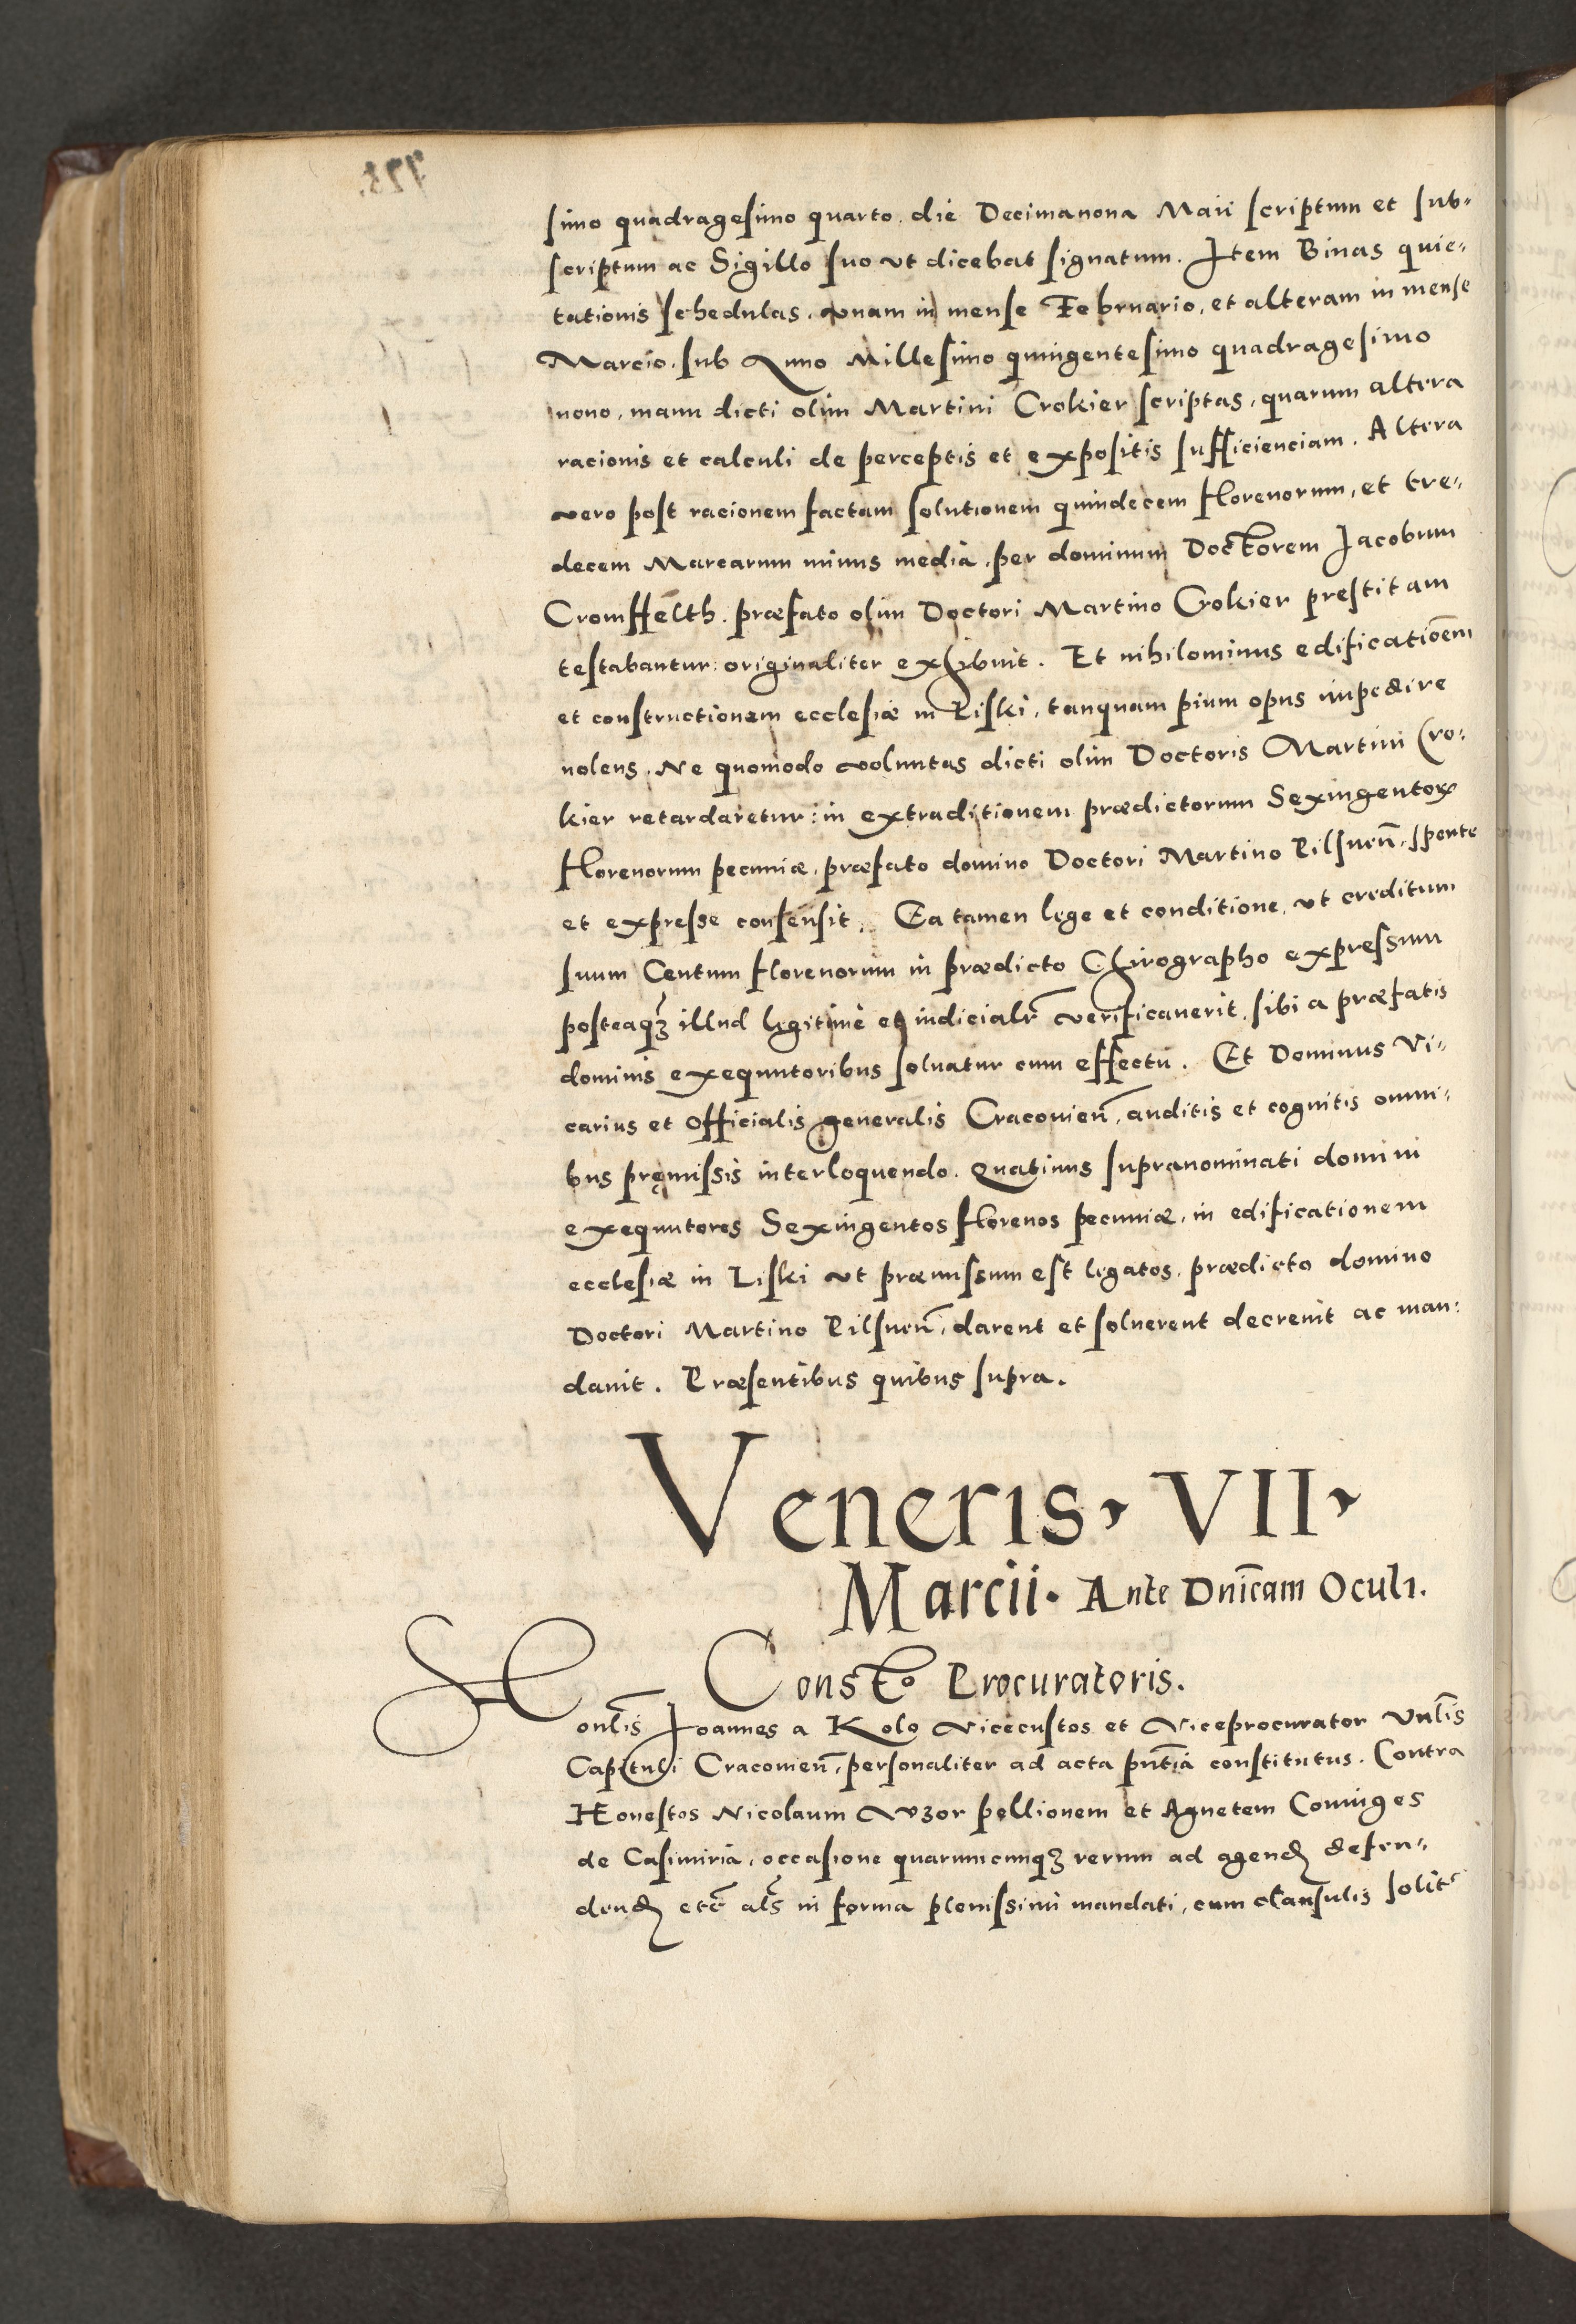 simo quadragesimo quarto, die Decimanona Maii scriptum et sub-
scriptum ac Sigillo suo vt dicebat signatum. Item Binas quie-
tationis schedulas, vnam in mense Februario, et alteram in mense
Marcio, sub Anno Millesimo quingentesimo quadragesimo
nono, manu dicti olim Martini Crokier scriptas, quarum altera
racionis et calculi de perceptis et expositis sufficienciam. Altera
vero post racionem factam solutionem quindecem florenorum, et tre-
decem Marcarum minus media, per dominum Doctorem Jacobum
Cromffelth, præfato olim Doctori Martino Crokier prestitam
testabantur: originaliter exhibuit. Et nihilominus edificatiōem
et constructionem ecclesiæ in Liski, tanquam pium opus impedire
nolens, Ne quomodo voluntas dicti olim Doctoris Martini Cro-
kier retardaretur: in extraditionem prædictorum Sexingentoꝝ
florenorum pecuniæ, præfato domino Doctori Martino Pilsnen̄, sponte
et expresse consensit. Ea tamen lege et conditione, vt creditum
suum Centum florenorum in prædicto Chirographo expressum
posteaqꝫ illud legitime et iudicialr̄ verificauerit, sibi a præfatis
dominis exequutoribus soluatur cum effectu. Et Dominus Vi-
carius et Officialis generalis Cracouien̄, auditis et cognitis omni-
bus pręmissis interloquendo. Quatinus supranominati domini
exequutores Sexingentos florenos pecuniæ, in edificationem
ecclesiæ in Liski vt præmissum est legatos, prædicto domino
Doctori Martino Pilsnen̄, darent et soluerent decreuit ac man-
dauit. Præsentibus quibus supra.
Veneris, VII,
Marcii. Ante Dn̄icam Oculi.
Constᵒ Procuratoris.
Honl̄is Joannes a Kolo Vicecustos et Viceprocurator Vnl̄is
Capituli Cracouien̄, personaliter ad acta pn̄tia constitutus. Contra
Honestos Nicolaum Wzor pellionem et Agnetem Coniuges
de Casimiria, occasione quarumcunqꝫ rerum ad agend defen-
dend etc̄ al̄s in forma plenissimi mandati, cum clausulis solit